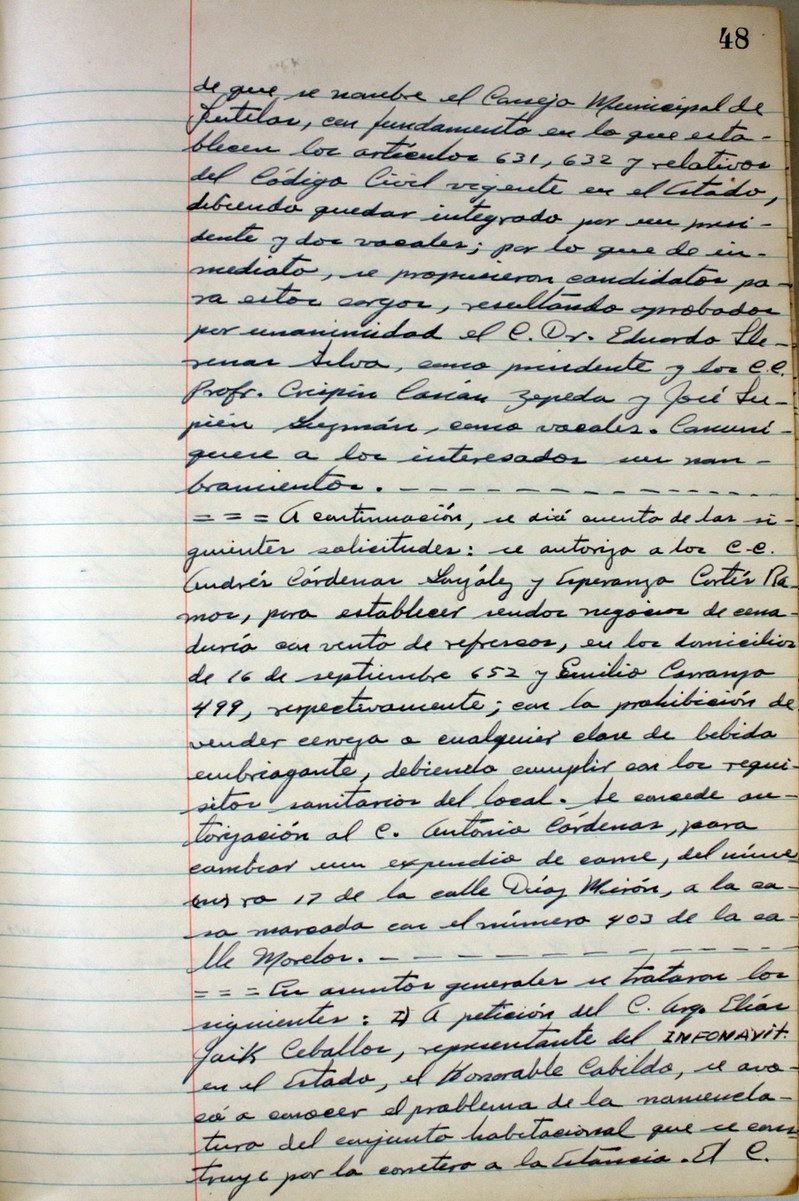 48
de que se nombre el Consejo Municipal de
Tutelas, con fundamento en lo que esta-
blecen los artículos 631, 632 y relativos
del Código Civil vigente en el Estado,
debiendo quedar integrado por un presi-
dente y dos vocales; por lo que de in-
mediato, se propusieron candidatos pa-
ra estos cargos, resultando aprobados
por unanimidad el C. Dr. Eduardo Lle-
renas Silva, como presidente y los C.C.
Profr. Crispín Casián Zepeda y José Su-
pién Guzmán, como vocales. Comuní-
quese a los interesados sus nom-
bramientos. - - - - - - - - - - - -
= = = A continuación, se dió cuenta de las si-
guientes solicitudes: se autoriza a los C.C.
Andrés Cárdenas González y Esperanza Cortés Ra-
mos, para establecer sendos negocios de cena-
duría con venta de refrescos, en los domicilios
de 16 de septiembre 652 y Emilio Carranza
499, respectivamente; con la prohibición de
vender cerveza o cualquier clase de bebida
embriagante, debiendo cumplir con los requi-
sitos sanitarios del local. Se concede au-
torización al C. Antonio Cárdenas, para
cambiar su expendio de carne, del núme-
ro 17 de la calle Díaz Mirón, a la ca-
sa marcada con el número 403 de la ca-
lle Morelos. - - - - - - - - - - - -
= = = En asuntos generales se trataron los
siguientes: I) A petición del C. Arq. Elías
Jaik Ceballos, representante del INFONAVIT.
en el Estado, el Honorable Cabildo, se avo-
có a conocer el problema de la nomencla-
tura del conjunto habitacional que se cons-
truye por la carretera a la Estancia. El C.